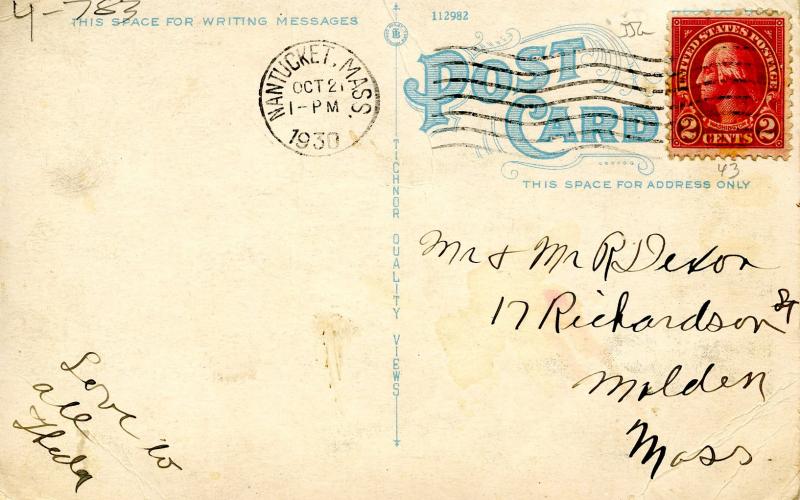 4-783
THIS SPACE FOR WRITING MESSAGES
112982
POST
CARD
THIS SPACE FOR ADDRESS ONLY
UNITED STATES POSTAGE
WASHINGTON
2 CENTS 2
43
NANTUCKET, MASS.
OCT 21
1-PM
1930
TICHNOR QUALITY VIEWS
Mr & Mr R Dexon
17 Richardson St
Malden
Mass.
Love to
all
Theda